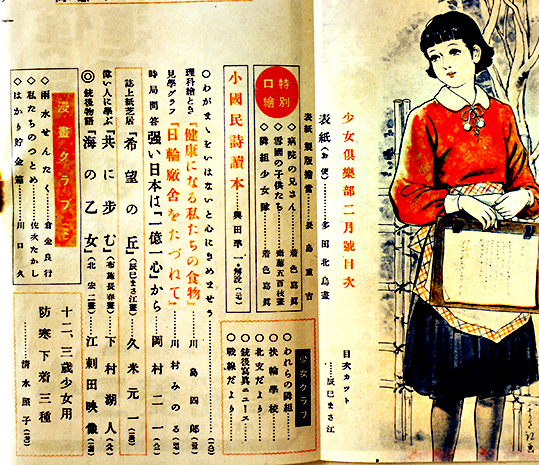 少女倶樂部二月號目次
表紙(お使)……多田北烏畫
表紙製版擔當……長島重吉
目次カット……辰巳まさ江
特別口繪
◇病院の兄さん……着色寫眞
◇雪國の子供たち……齋藤五百枝畫
◇隣組少女隊……着色寫眞
小國民詩讀本……與田凖一・解說
少女クラブ
○われらの隣組
○扶輪學校
○北支だより
○銃後寫眞ニュース
○戰線だより
○わがまゝをいはないと心にきめませう
理科繪とき『健康になる私たちの食物』……川島四郎
見學グラフ『日輪廠舍をたづねて』……川村みのる
時局問答 强い日本は『一億一心』から……岡村二一
誌上紙芝居『希望の丘』(辰巳まさ江畫)……久米元一
偉い人に學ぶ『共に步む』(布施長春畫)……下村湖人
◎銃後物語『海の乙女』(北宏二畫)……江刺田映像
漫畫クラブ
◇雨水せんたく……倉金良行
◇私たちのつとめ……佐次たかし
◇はかり貯金箱……川口久
十二、三歲少女用
防寒下着三種
……清水照子